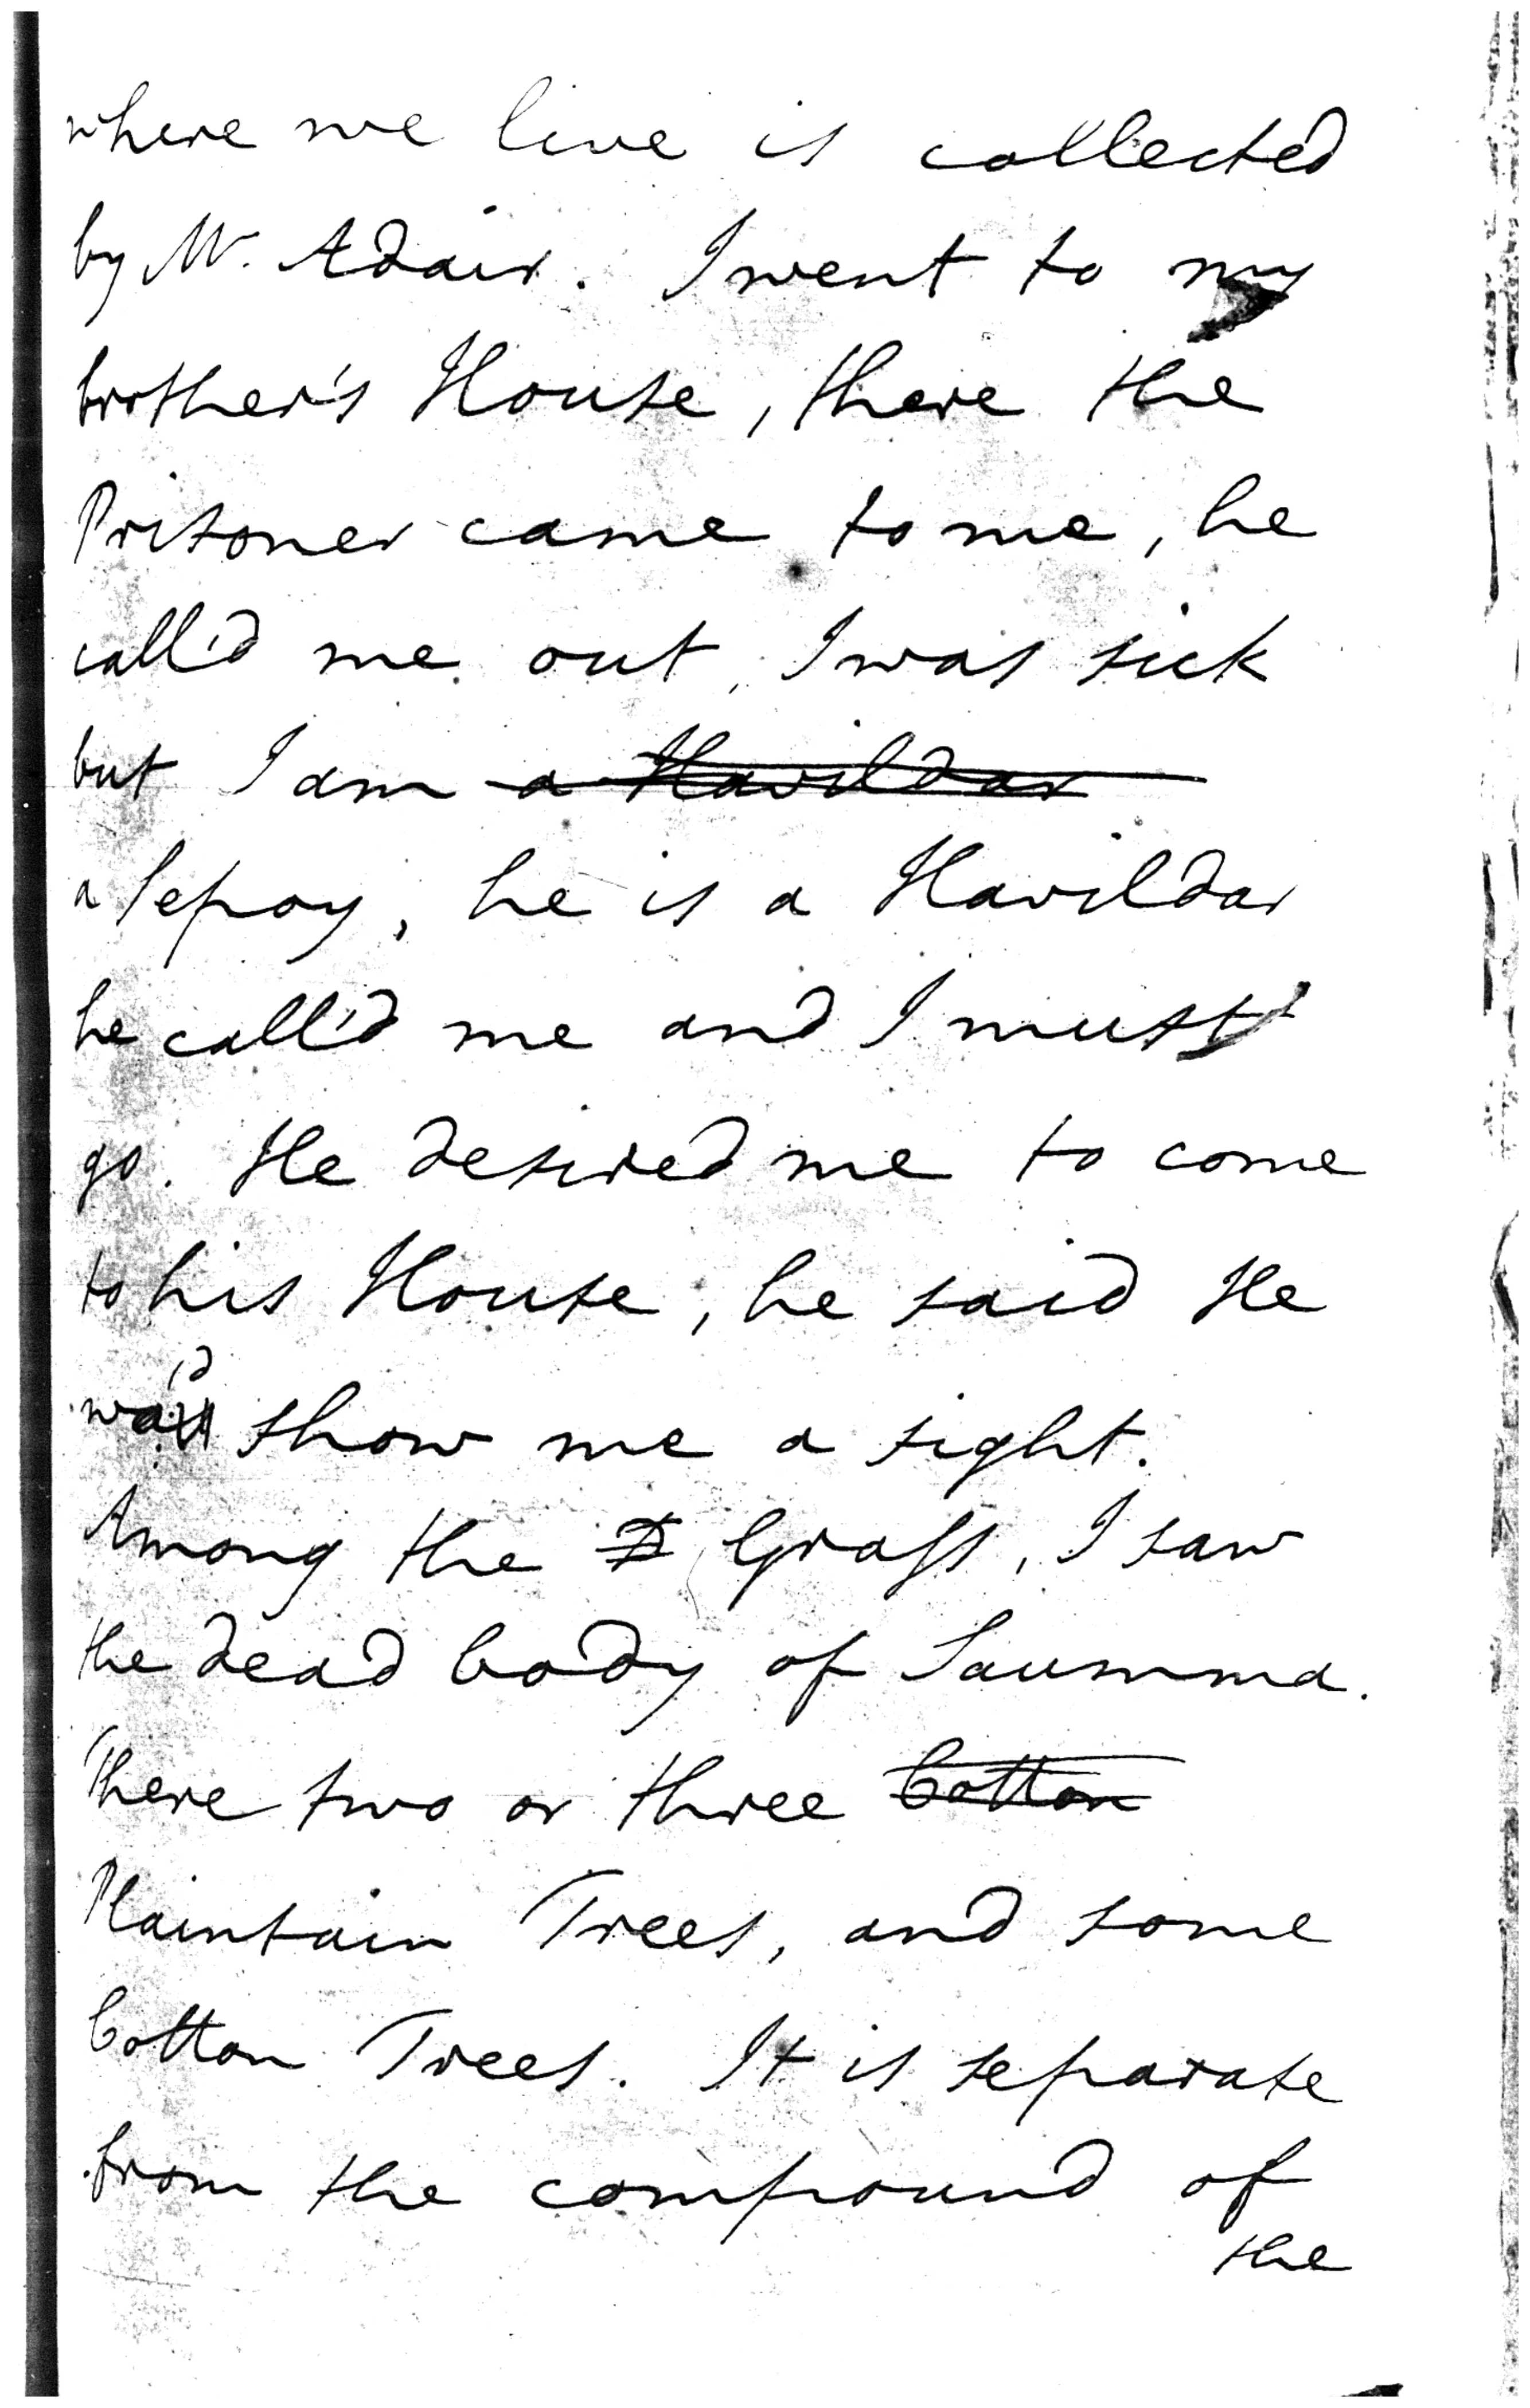 where we live is collected
by Mr. Adair. I went to my
brother's House, there the
Prisoner came to me, he
call'd me out, I was sick
but I am a Havildar
a Sepoy, he is a Havildar
he call'd me and I must
go. He desired me to come
to his House, he said He
wo'd show me a sight.
Among the Grass, I saw
the dead body of Saumma.
There two or three Cotton
Plaintain Trees, and some
Cotton Trees. It is separate
from the compound of
the